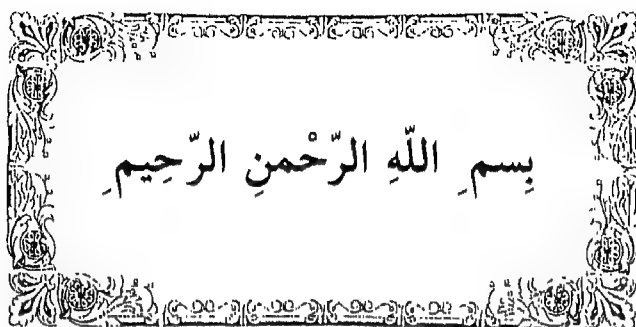 بِسم ِ اللّهِ الرّحْمنِ الرّحِيم ِ